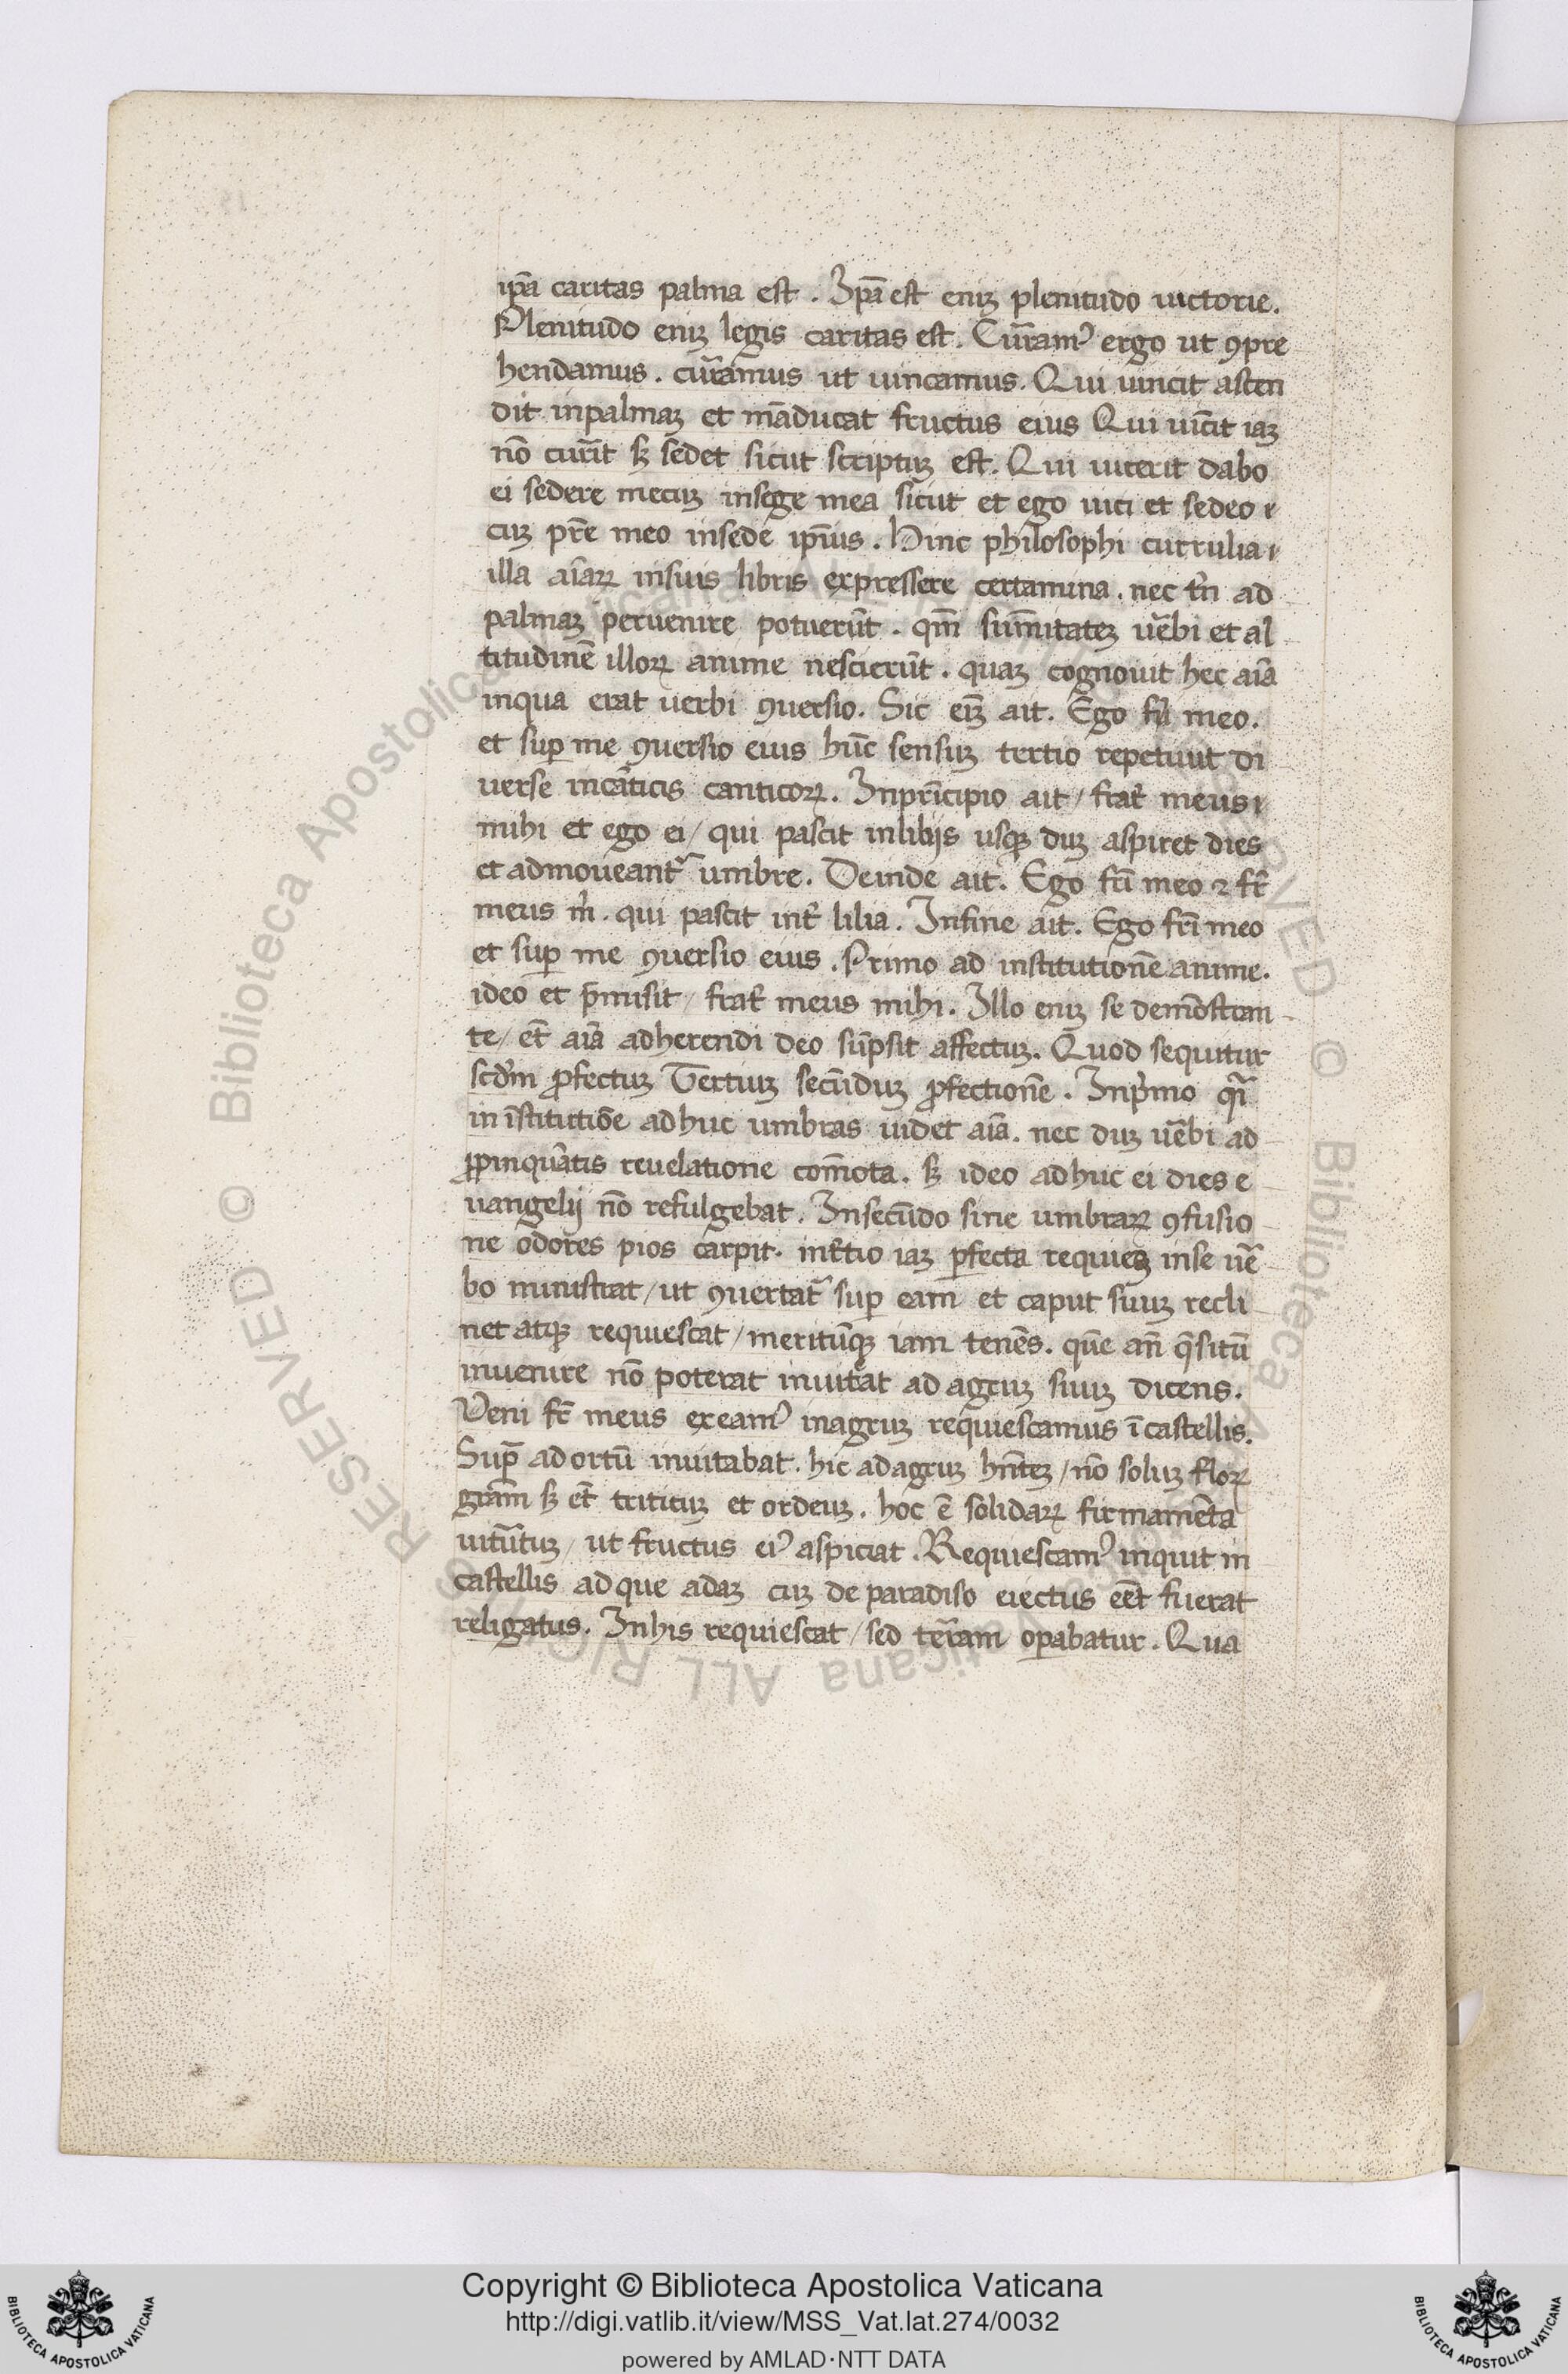 ip̄a caritas palma est. Ip̄a est eniꝫ plenitudo uictorie.
Plenitudo eniꝫ legis caritas est. Cur̄amꝰ ergo ut ꝯpre
hendamus. cur̄amus ut uincamus. Qui uincit ascen
dit inpalmaꝫ et māducat fructus eius Qui uīcit iaꝫ
nō cur̄it sꝫ sedet sicut scriptuꝫ est. Qui uicerit dabo
ei sedere mecuꝫ insege mea sicut et ego uici et sedeo
cuꝫ pr̄e meo insede ip̄ius. Hinc philosophi currulia
illa aīaꝝ insuis libris expressere certamina. nec tn̄ ad
palmaꝫ peruenire potuerūt. qm̄ sum̄itateꝫ uērbi et al
titudinē illoꝝ anime nescierūt. quaꝫ cognouit hec aīa
inqua erat uerbi ꝯuersio. Sic eīꝫ ait. Ego fr̄i meo.
et suꝑ me ꝯuersio eius hūc sensuꝫ tertio repetiuit di
uerse incāticis canticoꝝ. Inprīcipio ait / frat̄ meus
mihi et ego ei / qui pascit inlilijs usqꝫ duꝫ aspiret dies
et admoueant᷑ umbre. Deinde ait. Ego fr̄i meo ⁊ fr̄
meus m̄. qui pascit int̄ lilia. Infine ait. Ego fr̄i meo
et suꝑ me ꝯuersio eius. Primo ad institutionē anime.
ideo et p̄misit / frat̄ meus mihi. Illo eniꝫ se demōstran
te / et̄ aīa adherendi deo sūpsit affectuꝫ. Quod sequitur
scd̄m ꝓfectuꝫ Tertiuꝫ secūduꝫ ꝓfectionē. Inpͥmo qͣ
in īstitutiōe adhuc umbras uidet aīa. nec duꝫ uērbi ad
ꝓpinquātis reuelatione com̄ota. sꝫ ideo adhuc ei dies e
uangelij nō refulgebat. Insecūdo sine umbraꝝ ꝯfusio
ne odores pios carpit. int̄tio iaꝫ ꝑfecta requieꝫ inse uēr
bo ministrat / ut ꝯuertat᷑ suꝑ eam et caput suuꝫ recli
net atqꝫ requiescat / meritūqꝫ iam tenēs. quē an̄ q̄sitū
inuenire nō poterat inuitat ad agruꝫ suuꝫ dicens.
Veni fr̄ meus exeamꝰ inagruꝫ requiescamus ī castellis.
Supͣ ad ortū inuitabat. hic adagruꝫ hn̄teꝫ / nō soluꝫ floꝝ
gr̄am sꝫ et̄ trititiuꝫ et ordeuꝫ. hoc ē solidaꝝ firmamēta
uitūtuꝫ / ut fructus eiꝰ aspiciat. Requiescamꝰ inquit in
castellis ad que adaꝫ cuꝫ de paradiso eiectus eēt fuerat
religatus. Inhis requiescat / sed ter̄am oꝑabatur. Qua
Copyright © Biblioteca Apostolica Vaticana
http://digi.vatlib.it/view/MSS_Vat.lat.274/0032
powered by AMLAD·NTT DATA